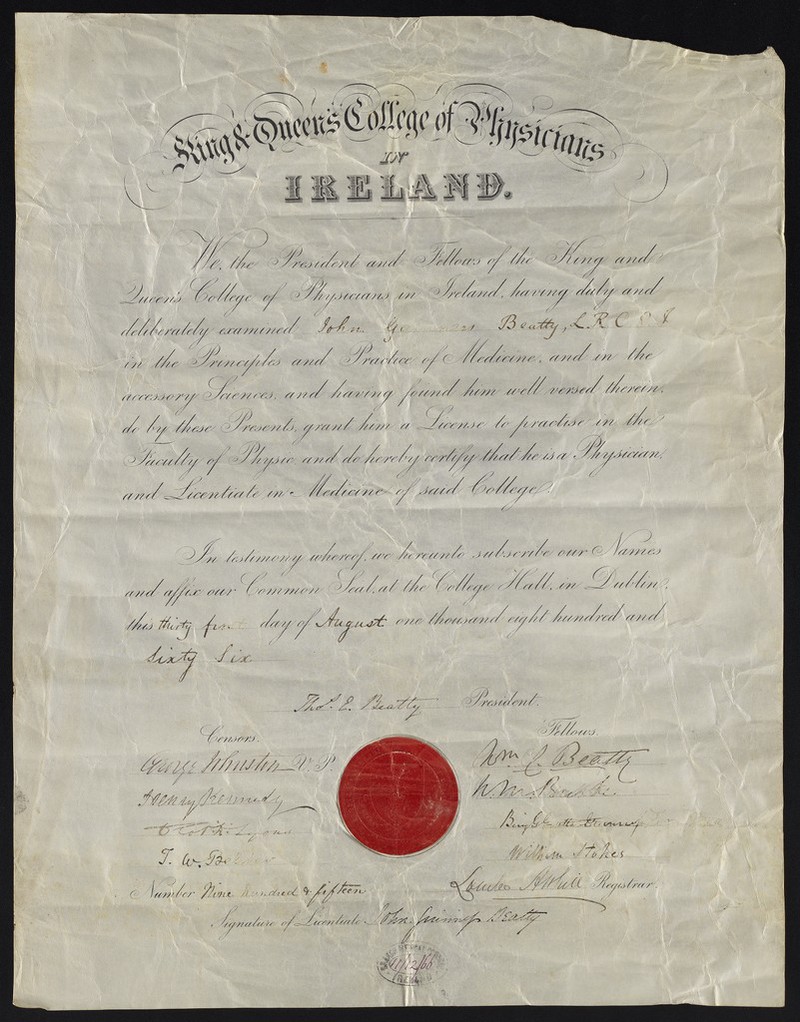 King & Queen's College of Physicians
IN
IRELAND.
We, the President and Fellows of the King and
Queen's College of Physicians in Ireland, having duly and
deliberately examined John Beatty, L.R.C.S.I
in the Principles and Practice of Medicine, and in the
accessory Sciences, and having found him well versed therein,
do by these Presents, grant him a License to practise in the
Faculty of Physic, and do hereby certify that he is a Physician,
and Licentiate in Medicine of said College.
In testimony whereof, we hereunto subscribe our Names
and affix our Common Seal, at the College Hall, in Dublin,
this thirty first day of August one thousand eight hundred and
Sixty Six
Thos. E. Beatty President.
Censors. Fellows.
George Johnston V.P. Wm. Beatty
Henry Kennedy
Lyons
T. W. William Stokes
Number Nine hundred & fifteen Registrar.
Signature of Licentiate John Beatty
11/12/66
IRELAND